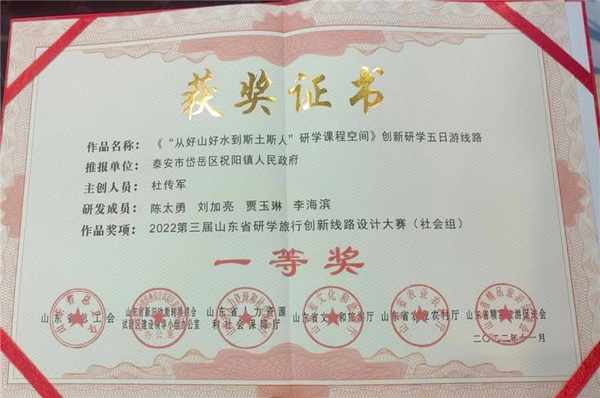 获奖证书
作品名称：《“从好山好水到斯土斯人”研学课程空间》创新研学五日游线路
推报单位：泰安市岱岳区祝阳镇人民政府
主创人员：杜传军
研发成员：陈太勇 刘加亮 贾玉琳 李海滨
作品奖项：2022第三届山东省研学旅行创新线路设计大赛（社会组）
一等奖
山东省总工会
山东省人力资源和社会保障厅
山东省文化和旅游厅
山东省农业农村厅
山东省精品旅游促进会
二〇二二年十一月